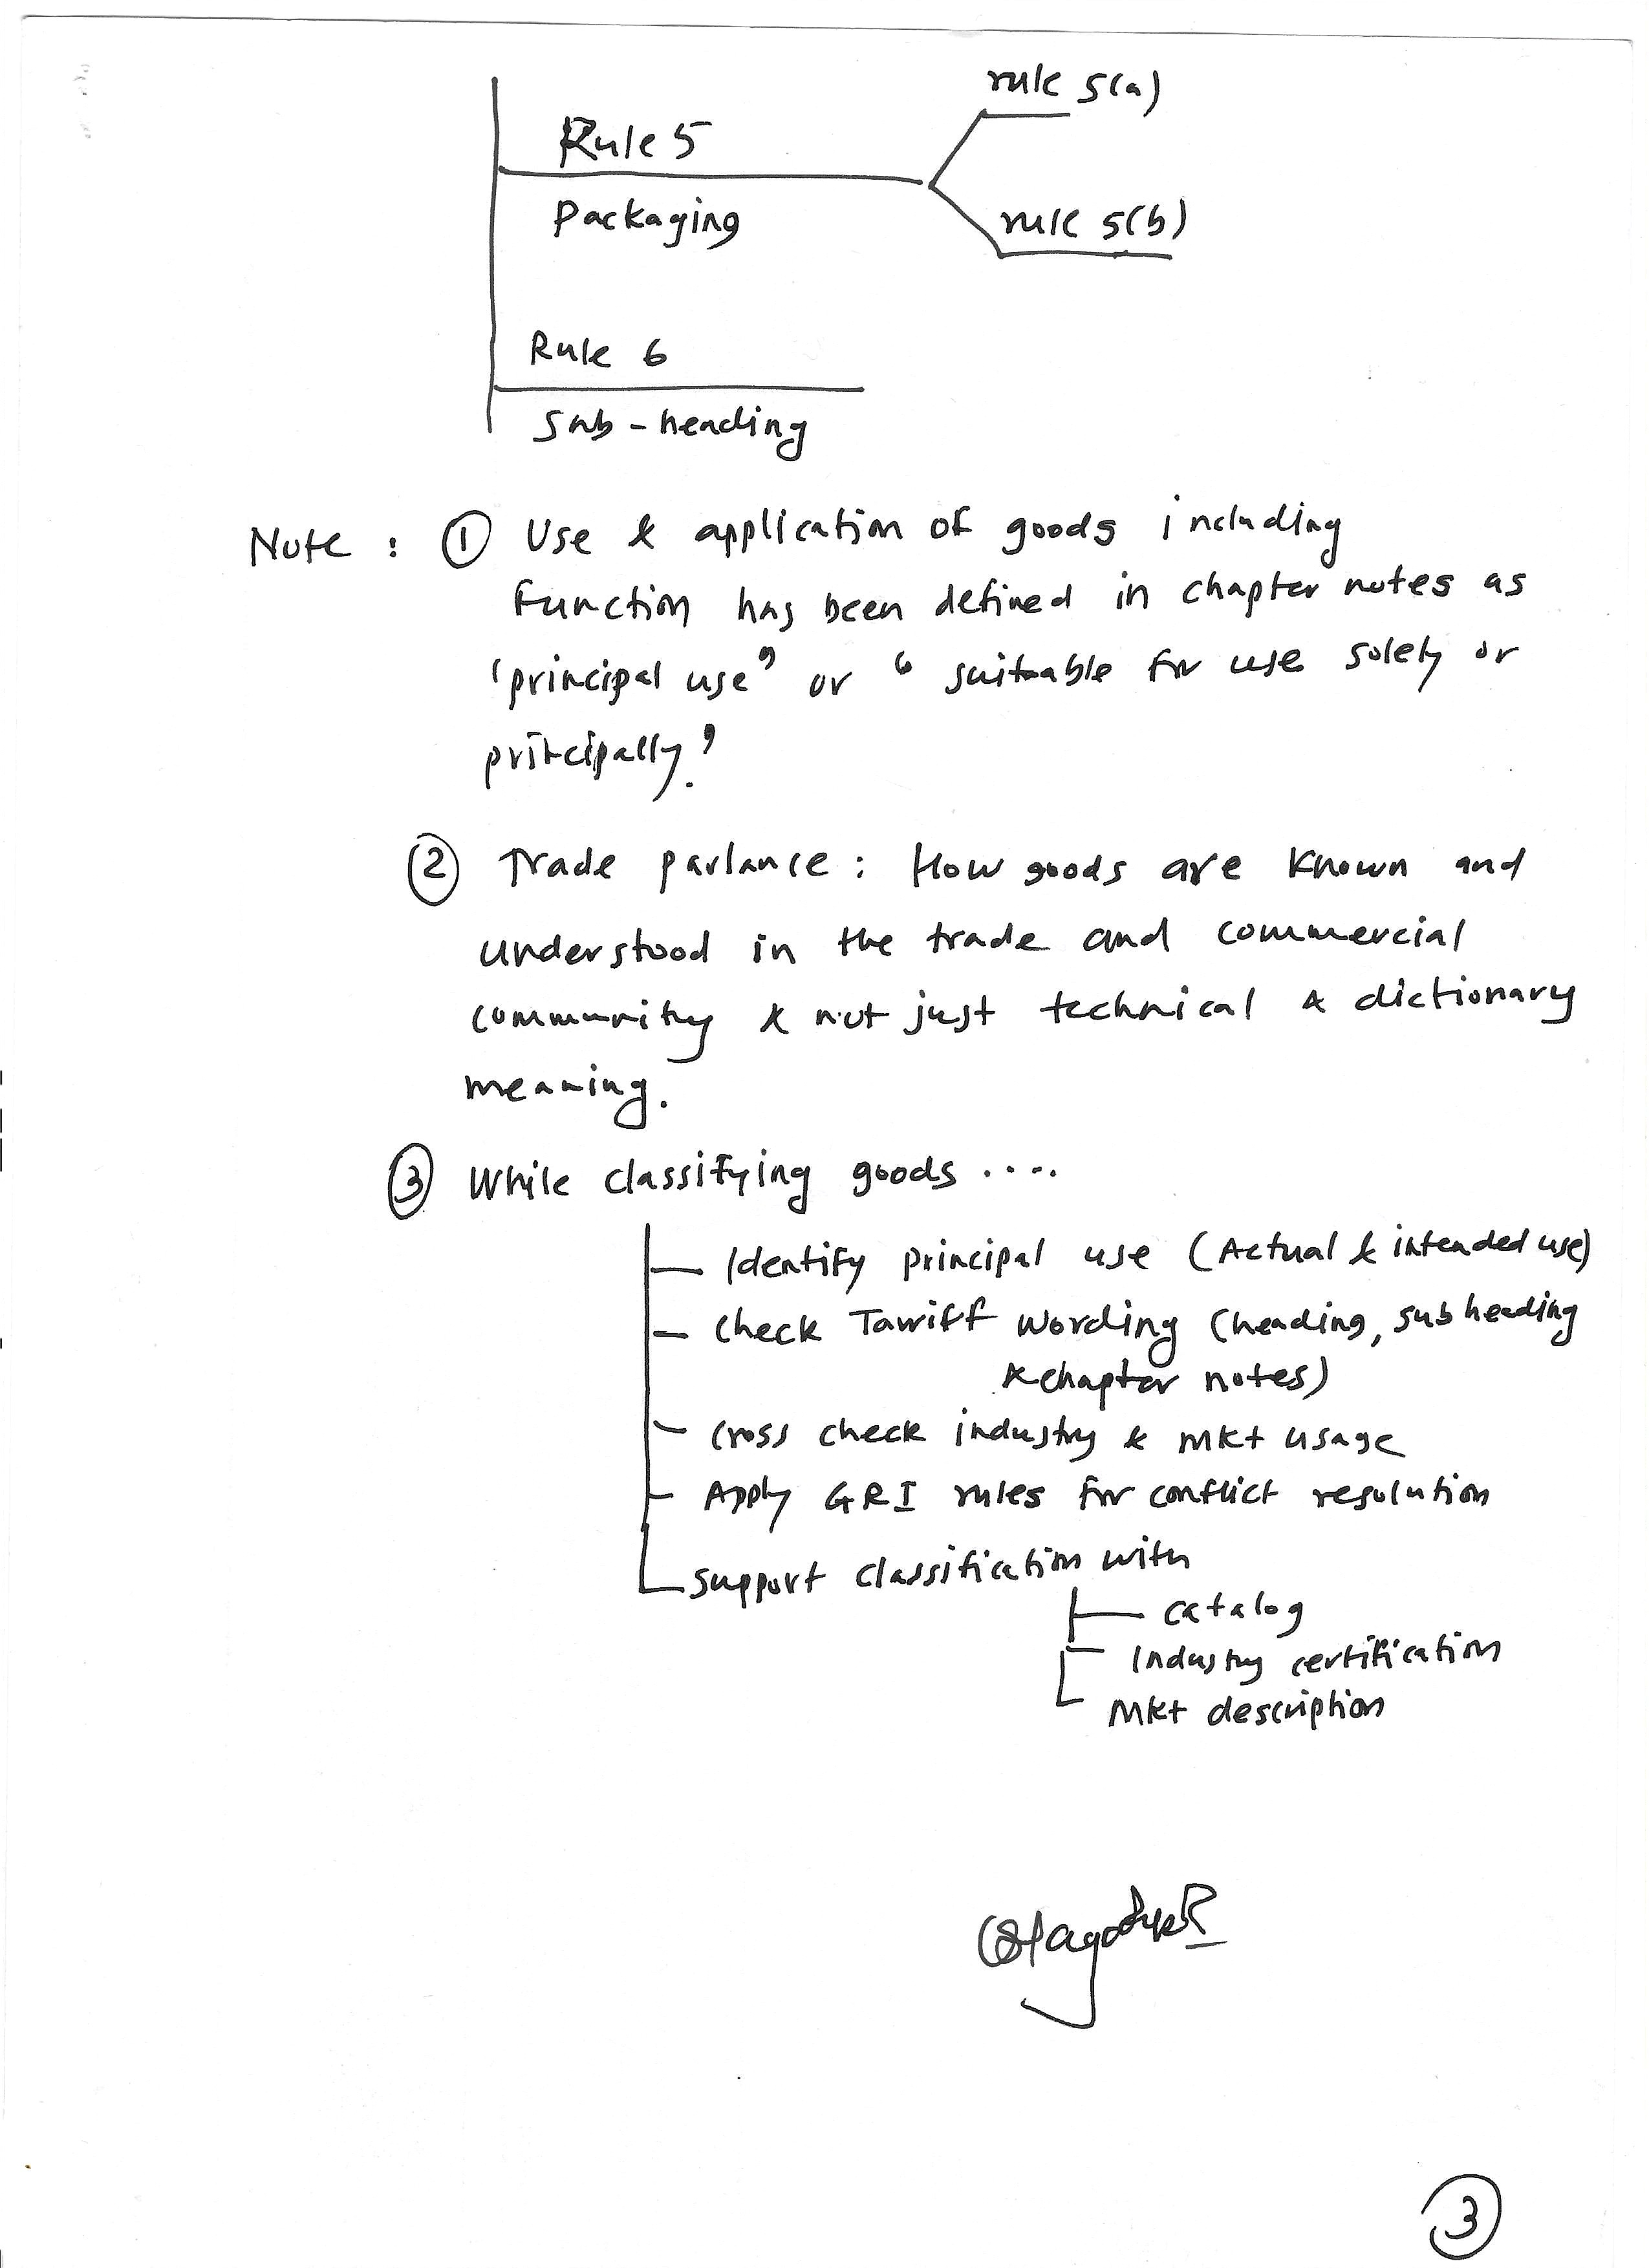 rule 5(a)
Rule 5
Packaging
rule 5(b)
Rule 6
Sub-heading
Note : ① Use & application of goods including
function has been defined in chapter notes as
'principal use' or ' suitable for use solely or
principally'.
② Trade parlance : How goods are known and
understood in the trade and commercial
community & not just technical & dictionary
meaning.
③ While classifying goods ....
Identify principal use (Actual & intended use)
Check Tarriff Wording (heading, sub heading
& chapter notes)
Cross check industry & mkt usage
Apply GRI rules for conflict resolution
Support classification with
catalog
Industry certification
Mkt description
3